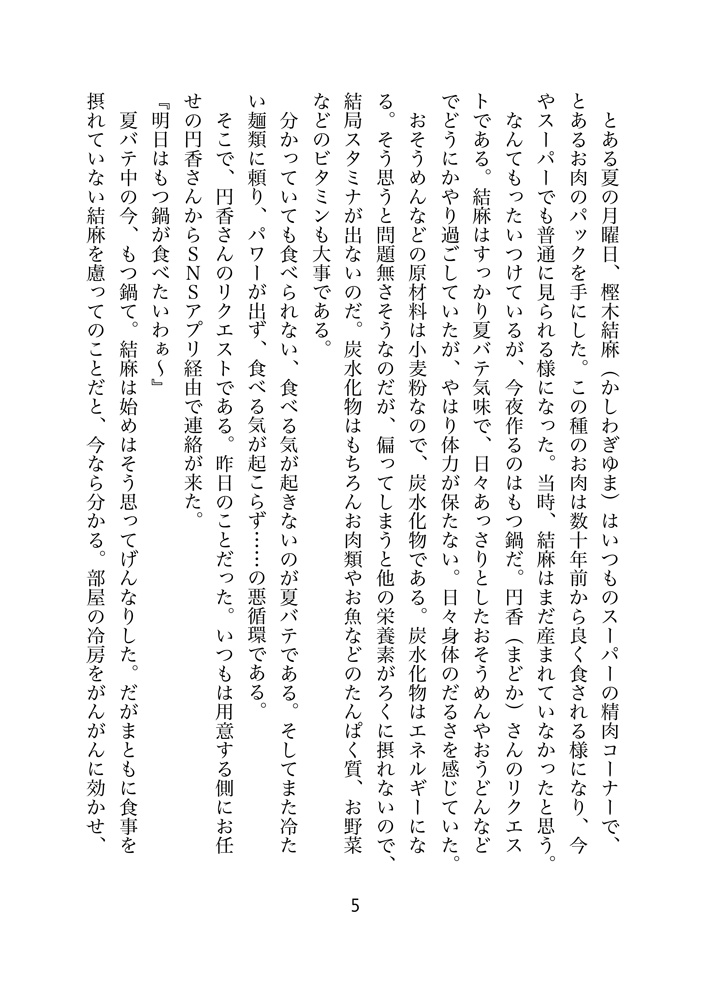 とある夏の月曜日、樫木結麻（かしわぎゆま）はいつものスーパーの精肉コーナーで、
とあるお肉のパックを手にした。この種のお肉は数十年前から良く食される様になり、今
やスーパーでも普通に見られる様になった。当時、結麻はまだ産まれていなかったと思う。
なんてもったいつけているが、今夜作るのはもつ鍋だ。円香（まどか）さんのリクエス
トである。結麻はすっかり夏バテ気味で、日々あっさりとしたおそうめんやおうどんなど
でどうにかやり過ごしていたが、やはり体力が保たない。日々身体のだるさを感じていた。
おそうめんなどの原材料は小麦粉なので、炭水化物である。炭水化物はエネルギーにな
る。そう思うと問題無さそうなのだが、偏ってしまうと他の栄養素がろくに摂れないので、
結局スタミナが出ないのだ。炭水化物はもちろんお肉類やお魚などのたんぱく質、お野菜
などのビタミンも大事である。
分かっていても食べられない、食べる気が起きないのが夏バテである。そしてまた冷た
い麺類に頼り、パワーが出ず、食べる気が起こらず……の悪循環である。
そこで、円香さんのリクエストである。昨日のことだった。いつもは用意する側にお任
せの円香さんからＳＮＳアプリ経由で連絡が来た。
『明日はもつ鍋が食べたいわぁ～』
夏バテ中の今、もつ鍋て。結麻は始めはそう思ってげんなりした。だがまともに食事を
摂れていない結麻を慮ってのことだと、今なら分かる。部屋の冷房をがんがんに効かせ、
5